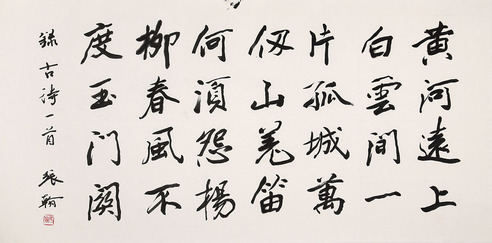 黄河遠上
白雲間一
片孤城萬
仭山羌笛
何須怨楊
柳春風不
度玉門関
錄古詩一首 張翰